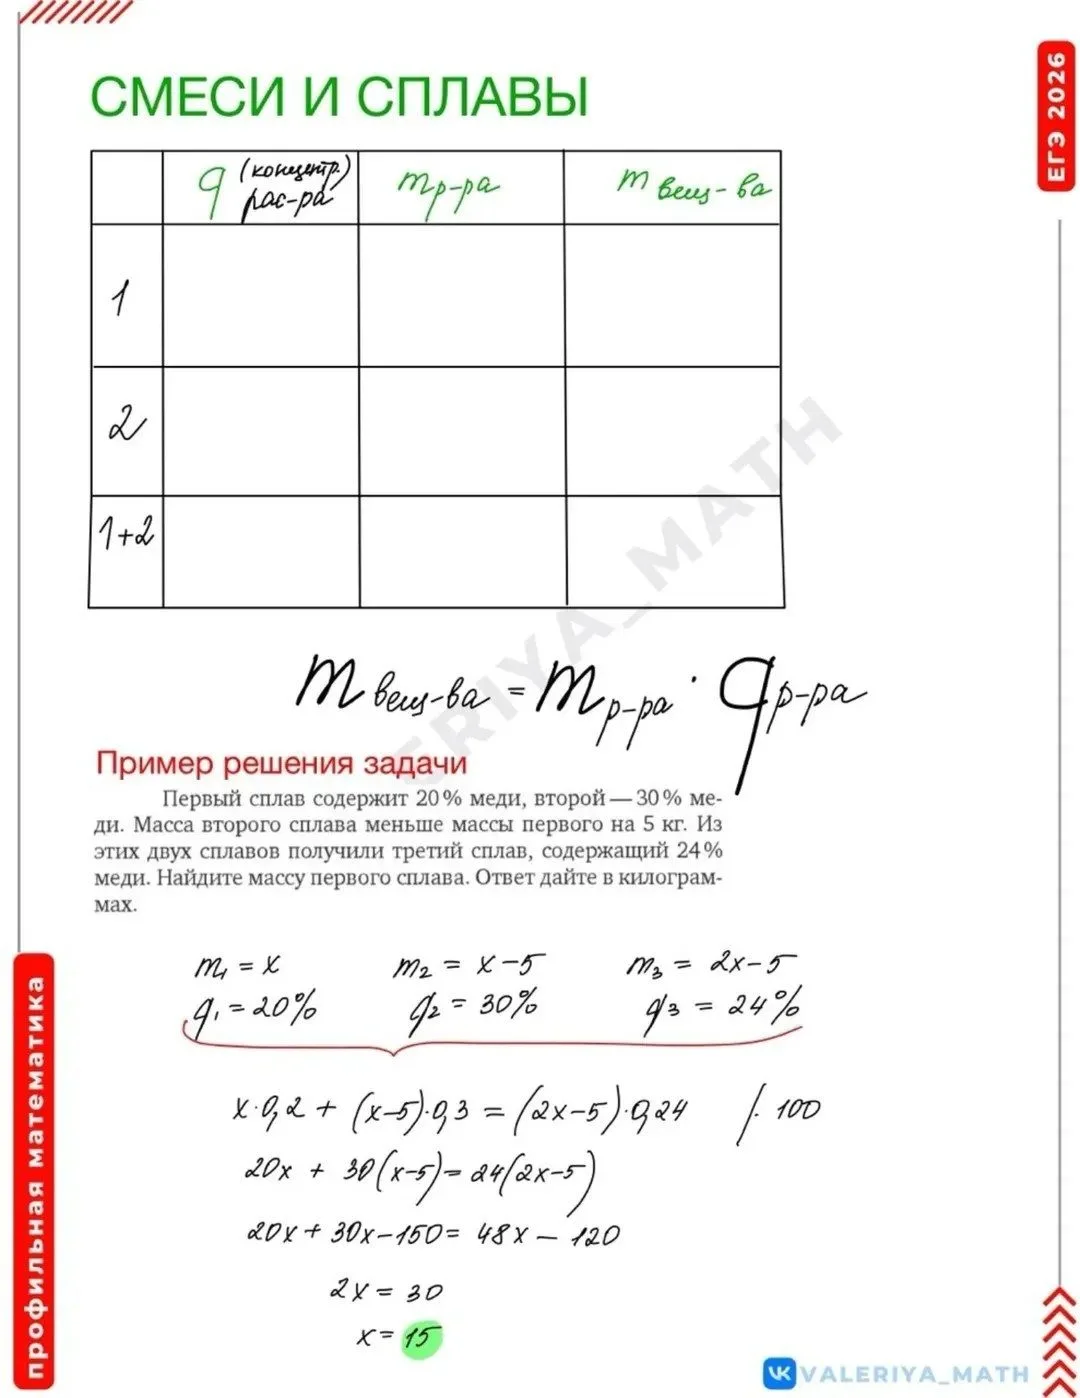 СМЕСИ И СПЛАВЫ
ЕГЭ 2026
q (концентр.) рас-ра
m р-ра
m вещ-ва
1
2
1+2
m вещ-ва = m р-ра · q р-ра
Пример решения задачи
Первый сплав содержит 20% меди, второй — 30% ме-
ди. Масса второго сплава меньше массы первого на 5 кг. Из
этих двух сплавов получили третий сплав, содержащий 24%
меди. Найдите массу первого сплава. Ответ дайте в килограм-
мах.
m₁ = x m₂ = x-5 m₃ = 2x-5
q₁ = 20% q₂ = 30% q₃ = 24%
x·0,2 + (x-5)·0,3 = (2x-5)·0,24 /· 100
20x + 30(x-5) = 24(2x-5)
20x + 30x - 150 = 48x - 120
2x = 30
x = 15
профильная математика
VALERIYA_MATH
ERIYA_MATH